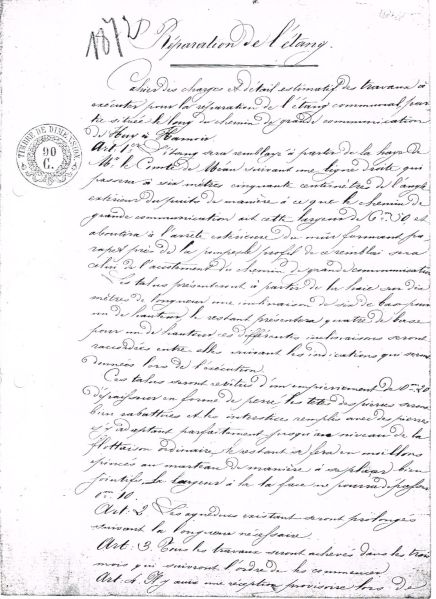 1872
Réparation de l'étang.
Cahier des charges & détail estimatif des travaux à
exécuter pour la réparation de l'étang communal, par
tie située le long du chemin de grande communication
de Huy à Hamoir.
TIMBRE DE DIMENSION
90
C.
Art. 1er L'étang sera remblayé à partir de la haye de
Mr. le Comte de Méan suivant une ligne droite qui
passera à six mètres cinquante centimètres de l'angle
extérieur du puits de manière à ce que le chemin de
grande communication ait cette largeur de 6m50 et
aboutira à l'arrête extérieure du mur formant pa
rapet près de la pompe le profil de ce remblai sera
celui de l'accotement du chemin de grande communication
Les talus présenteront à partir de la haie sur dix
mètres de longueur une inclinaison de six de base pour
un de hauteur le restant présentera quatre de base
pour un de hauteur ces différentes inclinaisons seront
raccordées entre elles suivant les indications qui seront
données lors de l'exécution.
Ces talus seront revêtus d'un empierrement de 0m20
d'épaisseur en forme de perré les têtes des pierres seront
bien rabattues et les interstices remplis avec des pierres
s'y adaptant parfaitement jusqu'au niveau de la
flottaison ordinaire, le restant se fera en moëllons
épincés au marteau de manière à se placer bien
jointifs. La largeur à la face ne pourra dépasser
0m.10.
Art. 2. Les aqueducs existant seront prolongés
suivant la longueur nécessaire.
Art. 3. Tous les travaux seront achevés dans les trois
mois qui suivront l'ordre de les commencer.
Art. 4. Il y aura une réception provisoire lors de